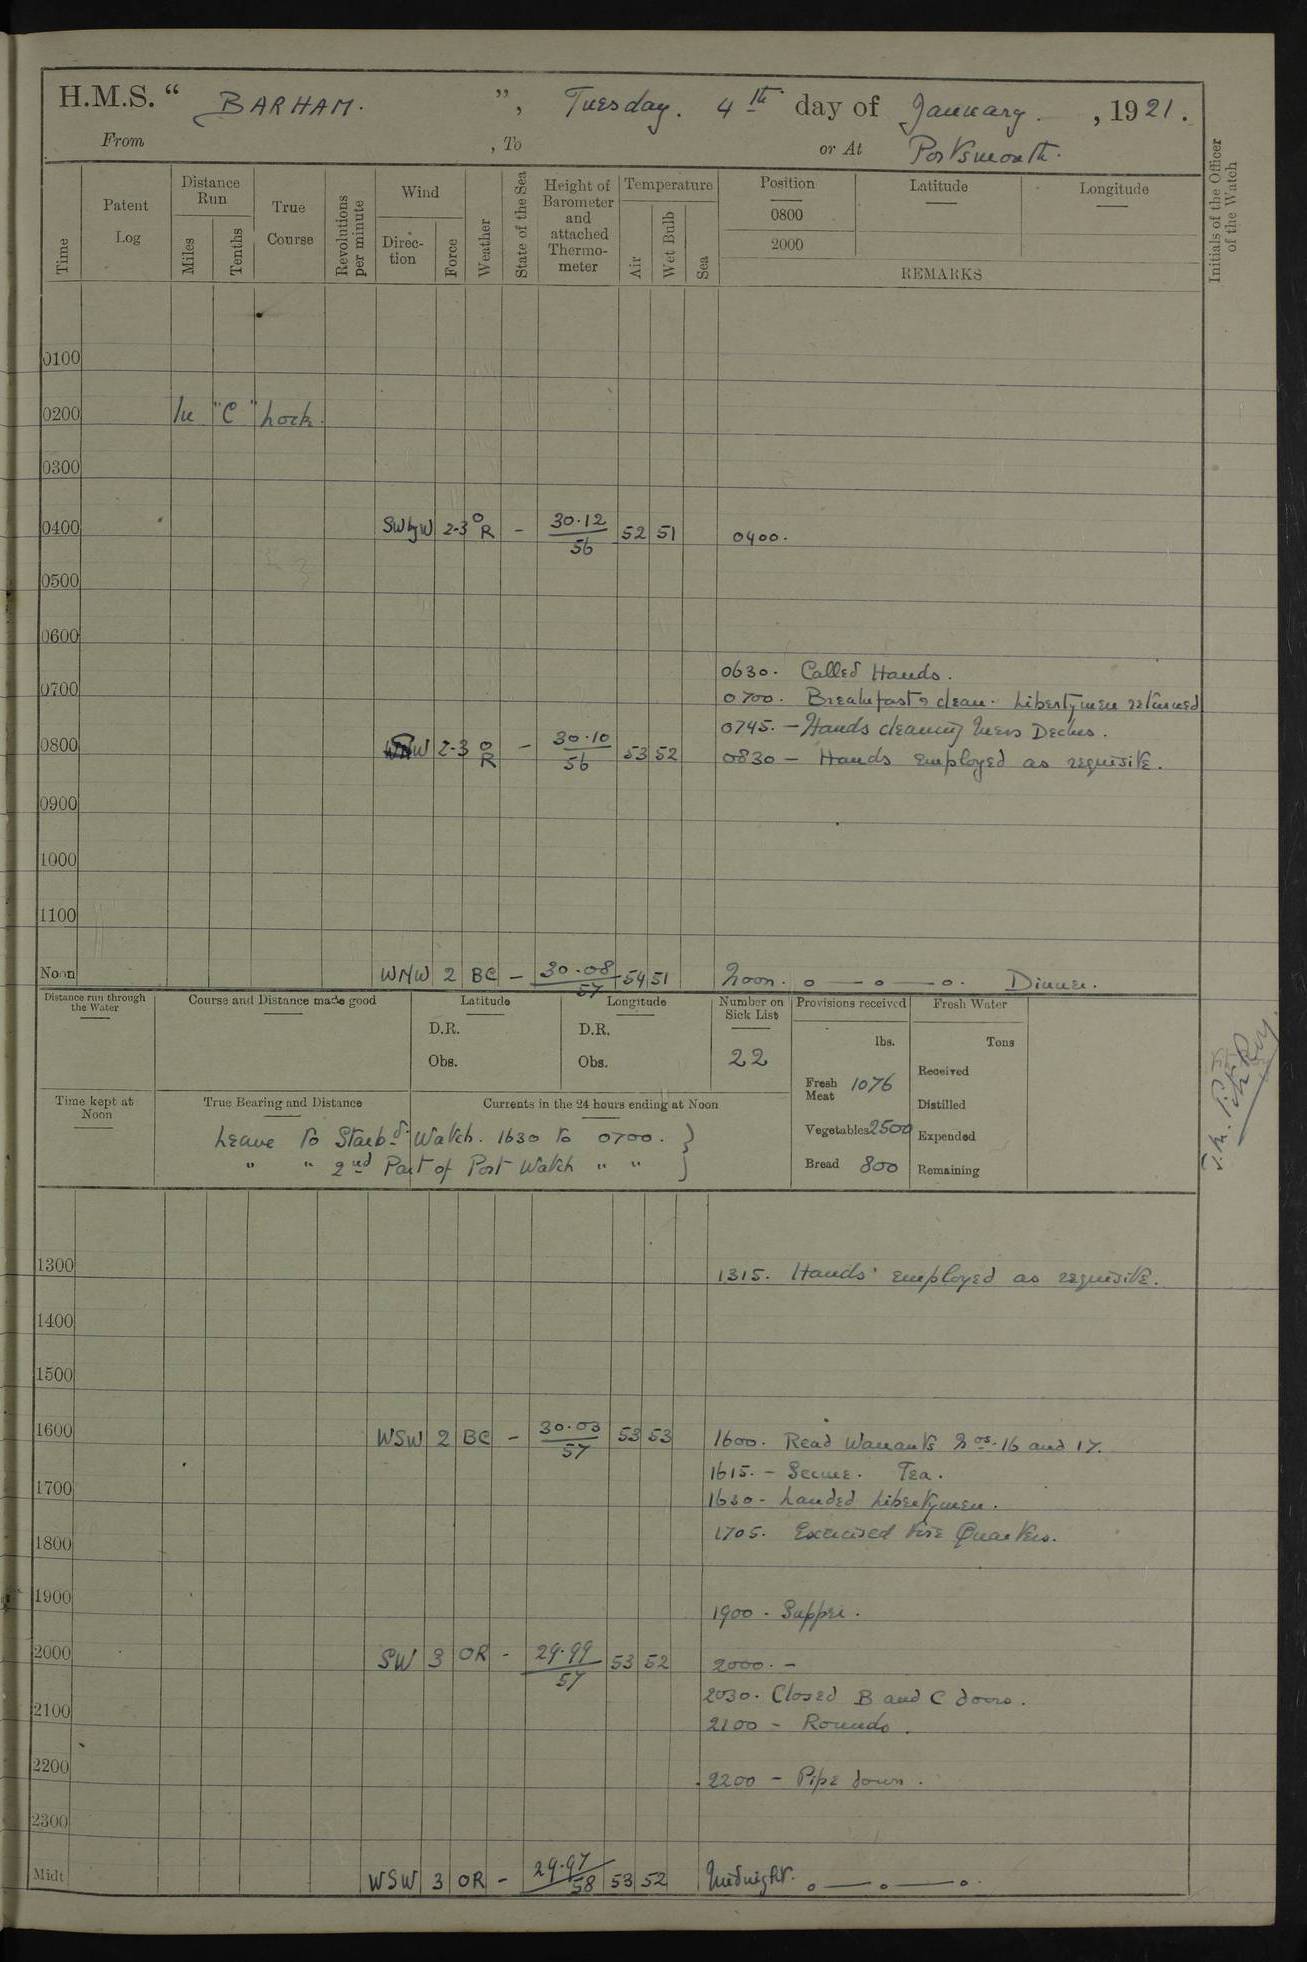 H.M.S. “ BARHAM. ”, Tuesday. 4th day of January. , 1921.
From , To or At Portsmouth.
Time Patent Log Distance Run Miles Tenths True Course Revolutions per minute Wind Direc-tion Force Weather State of the Sea Height of Barometer and attached Thermo-meter Temperature Air Wet Bulb Sea Position 0800 2000 Latitude Longitude
REMARKS
Initials of the Officer of the Watch
0100
0200 In "C" Lock.
0300
0400 SWbyW 2-3 O R - 30.12 / 56 52 51 0400.
0500
0600
0630. Called Hands.
0700 0700. Breakfast & clean. Libertymen returned
0745. - Hands cleaning Mess Decks.
0800 W 2-3 O R - 30.10 / 56 53 52 0830 - Hands employed as requisite.
0900
1000
1100
Noon WNW 2 BC - 30.08 / 57 54 51 Noon. o — o — o. Dinner.
Distance run through the Water Course and Distance made good Latitude Longitude Number on Sick List Provisions received Fresh Water
D.R. D.R. lbs. Tons
Obs. Obs. 22 Received
Fresh Meat 1076
Time kept at Noon True Bearing and Distance Currents in the 24 hours ending at Noon Distilled
Leave to Starbd. Watch. 1630 to 0700. } Vegetables 2500 Expended
" " 2nd Part of Port Watch " " } Bread 800 Remaining
1300 1315. Hands employed as requisite.
1400
1500
1600 WSW 2 BC - 30.03 / 57 53 53 1600. Read Warrants Nos. 16 and 17.
1615. - Secure. Tea.
1700 1630 - Landed Libertymen.
1705. Exercised Fire Quarters.
1800
1900 1900. Supper.
2000 SW 3 OR - 29.99 / 57 53 52 2000. -
2030. Closed B and C doors.
2100 2100 - Rounds.
2200 2200 - Pipe down.
2300
Midt. WSW 3 OR - 29.97 / 58 53 52 Midnight. o — o — o.